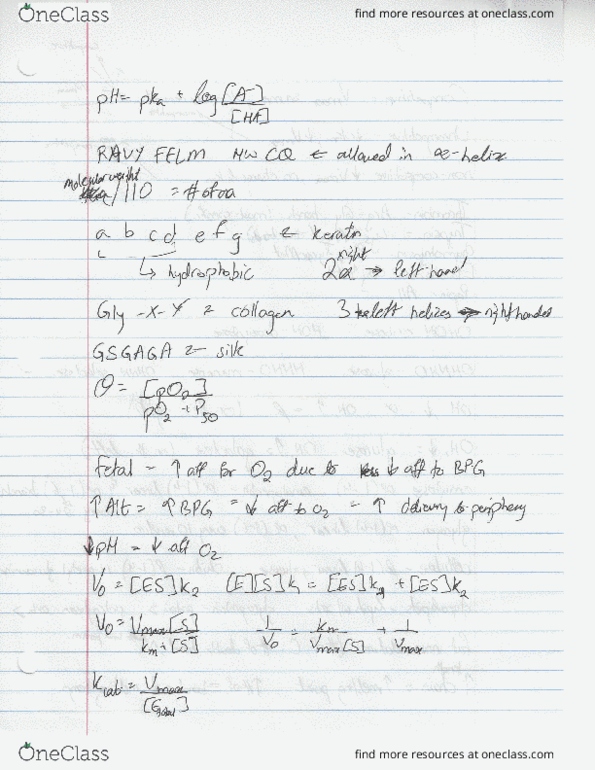 OneClass find more resources at oneclass.com
pH = pka + log [A⁻]/[HA]
RAVY FELM HW CQ ← allowed in α-helix
molecular weight /110 = # of aa
a b c d e f g ← keratin
↳ hydrophobic 2 right α → left hand
Gly -X-Y = collagen 3 left helizes → right handed
GSGAGA = silk
θ = [pO₂]/pO₂ + P₅₀
Fetal - ↑ aff for O₂ due to ↓ aff to BPG
↑ Alt = ↑ BPG = ↓ aff to O₂ = ↑ delivery to periphery
↓ pH = ↓ aff O₂
V₀ = [ES]k₂ [E][S]k₁ = [ES]k₋₁ + [ES]k₂
V₀ = Vmax[S]/km + [S] 1/V₀ = km/Vmax[S] + 1/Vmax
kcat = Vmax/[Etotal]
OneClass find more resources at oneclass.com